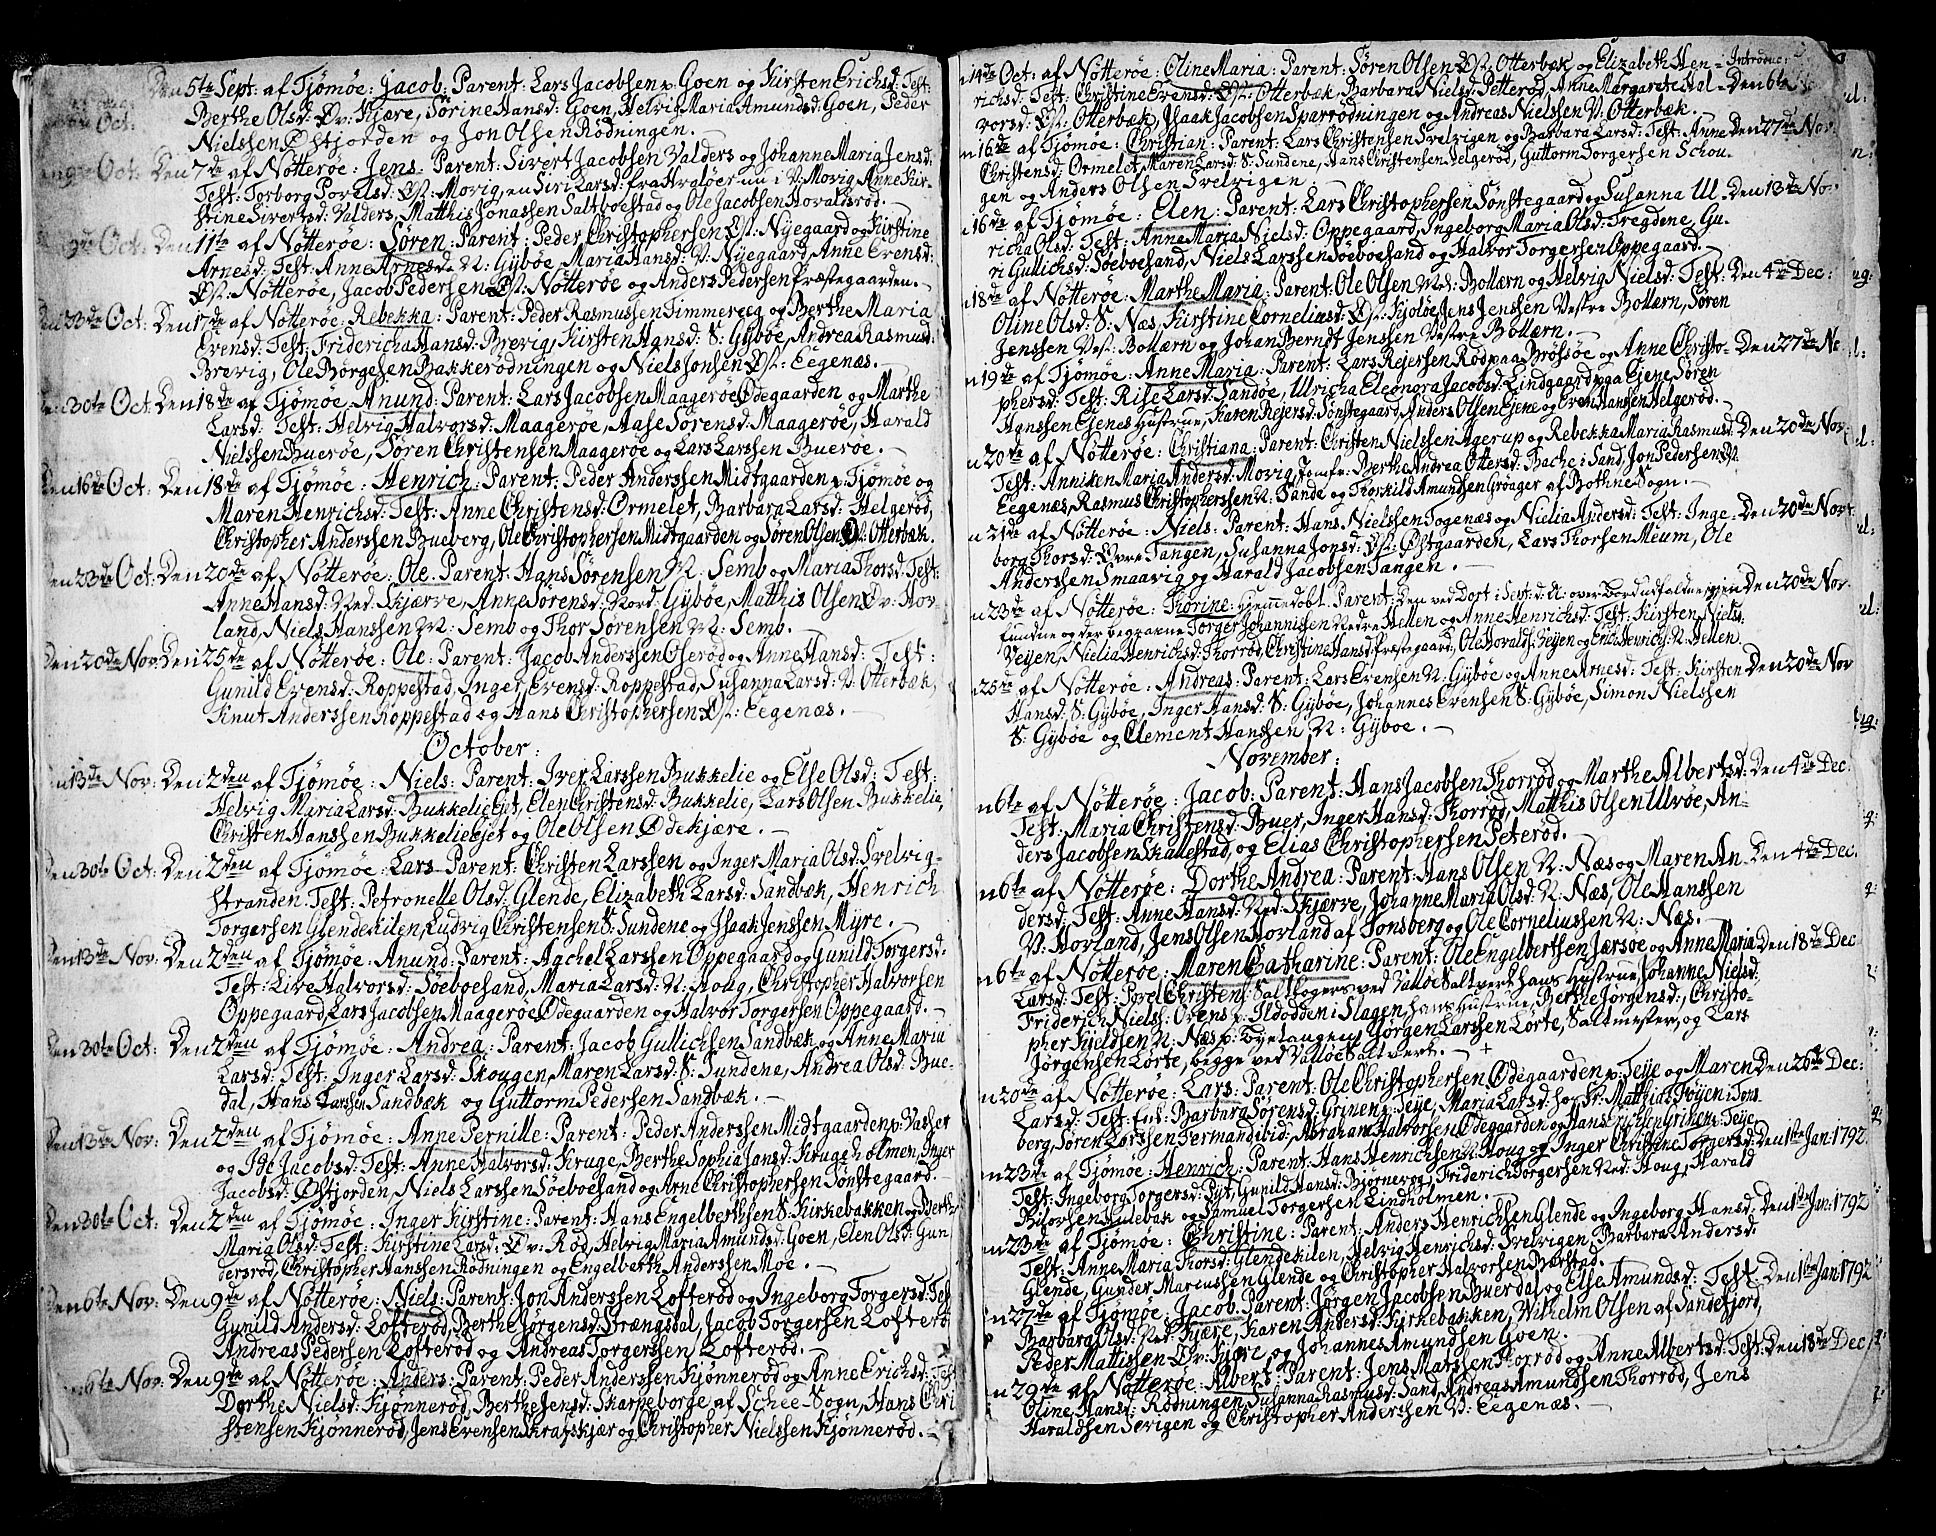 Den 5te Sept: af Tjømøe: Jacob: Parent: Lars Jacobsen p: Goen og Kirsten Erichsd: Test:
Oct: Berthe Olsd: Øv: Kjære, Sørine Hansd: Goen, Helvig Maria Amundsd: Goen, Peder
Nielssen Østjorden og Jon Olsen Rødningen.
9de Oct: Den 7de af Nötterøe: Jens: Parent: Sivert Jacobsen Valders og Johanne Maria Jensd:
Test: Torborg Povelsd: Øst: Movig, en Siri Larsd: fra Hrgløer nu i V: Movig Anne Kir-
stine Sivertsd: Valders, Matthis Jonassen Saltboestad og Ole Jacobsen Hovaldsrød.
9de Oct: Den 11te af Nötterøe: Søren: Parent: Peder Christophersen Øst: Nyegaard og Kirstine
Arnesd: Test: Anne Arnesd: N: Gybøe, Maria Hansd: V: Nyegaard, Anne Evensd:
Øst: Nötterøe, Jacob Pedersen Øst: Nötterøe og Anders Pedersen Præstegaarden.
Den 23de Oct: Den 17de af Nötterøe: Rebekka: Parent: Peder Rasmussen Timmereeg og Berthe Maria
Evensd: Test: Fridericha Hansd: Brevig, Kirsten Hansd: S: Gybøe, Andrea Rasmusd:
Brevig, Ole Børgesen Bakkerødningen og Niels Jonsen Øst: Eegenæs.
Den 30te Oct: Den 18de af Tjømøe: Anund: Parent: Lars Jacobsen Maagerøe Ødegaarden og Marthe
Larsd: Test: Helvig Halvorsd: Maagerøe, Aase Sørensd: Maagerøe, Harald
Nielssen Buerøe, Søren Christensen Maagerøe og Lars Larssen Buerøe.
Den 16de Oct: Den 18de af Tjømøe: Henrich: Parent: Peder Anderssen Midtgaarden p: Tjømøe og
Maren Henrichsd: Test: Anne Christensd: Ormelet, Barbara Larsd: Helgerød,
Christopher Anderssen Bueberg, Ole Christophersen Midtgaarden og Søren Olsen Øst: Otterbæk.
Den 23de Oct: Den 20de af Nötterøe: Ole: Parent: Hans Sørensen N: Semb og Maria Thorsd: Test:
Anne Hansd: Ned: Skjærve, Anne Sørensd: Nord: Gybøe, Matthis Olsen Øv: Hov-
land, Niels Hanssen N: Semb og Thor Sørensen N: Semb.
Den 20de Nov: Den 25de af Nötterøe: Ole: Parent: Jacob Anderssen Oserød og Anne Hansd: Test:
Gunild Evensd: Roppestad, Inger Evensd: Roppestad, Susanna Larsd: V: Otterbæk,
Knut Anderssen Roppestad og Hans Christophersen Øst: Eegenæs.
October:
Den 13de Nov: Den 2den af Tjømøe: Niels: Parent: Iver Larssen Bukkelie og Else Olsd: Test:
Helvig Maria Larsd: Bukkelie Ejt, Elen Christensd: Bukkelie, Lars Olsen Bukkelie,
Christen Hanssen Bukkelie Ejet og Ole Olsen Ødekjære.
Den 30te Oct: Den 2den af Tjømøe: Lars: Parent: Christen Larssen og Inger Maria Olsd: Svelvig-
stranden Test: Petronelle Olsd: Glende, Elizabeth Larsd: Sandbæk, Henrich
Torgersen Glendekilen, Ludvig Christensen S: Sundene og Isaak Jenssen Myre.
Den 13de Nov: Den 2den af Tjømøe: Anund: Parent: Aachel Larssen Oppegaard og Gunild Torgersd:
Test: Live Halvorsd: Søeboesand, Maria Larsd: N: Houg, Christopher Halvorsen
Oppegaard, Lars Jacobsen Maagerøe Ødegaarden og Halvor Torgersen Oppegaard.
Den 30te Oct: Den 2den af Tjømøe: Andrea: Parent: Jacob Gullichsen Sandbæk og Anne Maria
Larsd: Test: Inger Larsd: Skougen, Maren Larsd: S: Sundene, Andrea Olsd: Bue-
dal, Hans Larssen Sandbæk og Guttorm Pedersen Sandbæk.
Den 13de Nov: Den 2den af Tjømøe: Anne Pernille: Parent: Peder Anderssen Midtgaarden p: Vasser
og Ide Jacobsd: Test: Anne Halvorsd: Kruge, Berthe Sophia Jansd: Krugeholmen, Inger
Jacobsd: Østjorden, Niels Larssen Søeboesand og Arne Christophersen Sønstegaard.
Den 30te Oct: Den 2den af Tjømøe: Inger Kirstine: Parent: Hans Engelberthsen S: Kirkebakken og Berthe
Maria Olsd: Test: Kirstine Larsd: Øv: Rød, Helvig Maria Amundsd: Goen, Elen Olsd: Gun-
dersrød, Christopher Hanssen Rødningen og Engelberth Anderssen Moe.
Den 6te Nov: Den 9de af Nötterøe: Niels: Parent: Jon Anderssen Lofterød og Ingeborg Torgersd: Test:
Gunild Andersd: Lofterød, Berthe Jørgensd: Brængsdal, Jacob Torgersen Lofterø
Andreas Pedersen Lofterød og Andreas Torgerssen Lofterød.
6te Nov: Den 9de af Nötterøe: Anders: Parent: Peder Anderssen Kjønnerød og Anne Erichsd: Test
Dorthe Nielsd: Kjønnerød, Berthe Jensd: Skarpeborge af Schee-Sogn, Hans Chri
stensen Kjønnerød, Jens Evensen Skrafskjær og Christopher Nielssen Kjønnerød.
14de Oct: af Nötterøe: Oline Maria: Parent: Søren Olsen Øst: Otterbæk og Elizabeth Hen- Introduc:
richsd: Test: Christine Evensd: Øst: Otterbak, Barbara Nielsd: Petterød, Anne Margarete Hal- Den 6te
vorsd: Øst: Otterbæk, Isaak Jacobsen Sparrødningen og Andreas Nielssen V: Otterbæk.
16de af Tjømøe: Christian: Parent: Lars Christensen Svelvigen og Barbara Larsd: Test: Anne Den 27de Nov:
Christensd: Ormelet, Maren Larsd: S: Sundene, Hans Christensen Helgerød, Guttorm Torgersen Schou-
gen og Anders Olsen Svelvigen
16de af Tjømøe: Elen: Parent: Lars Christophersen Sønstegaard og Susanna Ul- Den 13de No-
richa Olsd: Test: Anne Maria Nielsd: Oppegaard, Ingeborg Maria Olsd: Tregdene, Gu-
ri Gullichsd: Søeboesand, Niels Larssen Søeboesand og Halvor Torgersen Oppegaard.
18de af Nötterøe: Marthe Maria: Parent: Ole Olsen Ned: Bollærn og Helvig Nielsd: Test: Den 4de Dec:
Oline Olsd: S: Næs, Kirstine Corneliusd: Øst: Kjoløe, Jens Jenssen Vestre Bollærn, Søren
Jenssen Vest: Bollærn og Johan Berndt Jenssen Vestre Bollærn.
19de af Tjømøe: Anne Maria: Parent: Lars Rejersen Rødpaa Brøtsøe og Anne Christo- Den 27de No
phersd: Test: Rise Larsd: Sandøe, Ulricha Eleonora Jacobsd: Lindgaard paa Ejene, Søren
Hanssen Ejenes Hustrue, Karen Rejersd: Sønstegaard, Anders Olsen Ejene og Even Hanssen Helgerød.
20de af Nötterøe: Christiana: Parent: Christen Nielssen Agerup og Rebekka Maria Rasmusd: Den 20de Nov:
Test: Anniken Maria Andersd: Movig, Jomfr: Berthe Andrea Ottersd: Bache i Sand, Jon Pedersen Øst:
Eegenæs, Rasmus Christopherssen N: Sande og Thorkild Amundsen Grøager af Bothne Sogn.
21de af Nötterøe: Niels: Parent: Hans Nielssen Togenæs og Nielia Andersd: Test: Inge- Den 20de Nov:
borg Thorsd: Øvre Tangen, Susanna Jonsd: Øst: Østgaarden, Lars Thorsen Meum, Ole
Anderssen Smaavig og Harald Jacobsen Tangen.
23de af Nötterøe: Thorine: hjemmedøbt. Parent: Den ved Dort i Sept: d: A: over Bord udfaldne igjen Den 20de Nov:
fundne og der begravne Torger Johannissen Nedre Hellen og Anne Henrichsd: Test: Kirsten Nielsd:
Vejen, Nielia Henrichsd: Thorrød, Christine Hansd: Præstegaard, Ole Horalds: Vejen og Erich Henrichs: N: Hellen.
25de af Nötterøe: Andreas: Parent: Lars Evensen N: Gybøe og Anne Arnesd: Test: Kirsten Den 20de Nov
Hansd: S: Gybøe, Inger Hansd: S: Gybøe, Johannes Evensen S: Gybøe, Simon Nielssen
S: Gybøe og Clement Hanssen N: Gybøe.
November:
6te af Nötterøe: Jacob: Parent: Hans Jacobsen Thorrød og Marthe Albertsd: Den 4de Dec:
Test: Maria Christensd: Buer, Inger Hansd: Thorrød, Matthis Olsen Ulvøe, An-
ders Jacobsen Skallestad, og Elias Christophersen Peterød.
6te af Nötterøe: Dorthe Andrea: Parent: Hans Olsen N: Næs og Maren An- Den 4de Dec.
dersd: Test: Anne Hansd: Ned: Skjærve, Johanne Maria Olsd: N: Næs, Ole Hanssen
V: Hovland, Jens Olsen Hovland af Tonsberg og Ole Corneliussen N: Næs.
6te af Nötterøe: Maren Catharine: Parent: Ole Engelberthsen Jærsøe og Anne Maria Den 18de Dec
Larsd: Test: Povel Christens: Saltkogers ved Valløe Saltverk hans Hustrue Johanne Nielsd:
Friderich Niels: Ovens p: Ildodden i Slagen, hans Hustrue, Berthe Jørgensd:, Christo-
pher Kieldsen N: Næs p: Byetangen, Jørgen Larssen Lørte, Saltmester, og Lars
Jørgensen Lørte, begge ved Valløe Saltverk.
20de af Nötterøe: Lars: Parent: Ole Christophersen Ødegaarden p: Teye og Maren Den 26de Dec:
Larsd: Test: Barbara Sørensd: Grinen p: Teye, Maria Larsd: hos Sr: Matthias Føyen: Tons-
berg, Søren Larssen Fermandibid, Abraham Halvorsen Ødegaarden og Hans Erichsen Griken: Teye
23de af Tjømøe: Henrich: Parent: Hans Henrichsen N: Houg og Inger Christine Torgersd: Den 1ste Jan: 1792
Test: Ingeborg Torgersd: Pÿt, Gunild Hansd: Bjørnevog, Friderich Torgersen Ned: Houg, Harald
Bilorsen Hulebak og Samuel Torgersen Lindholmen.
23de af Tjømøe: Christine: Parent: Anders Henrichsen Glende og Ingeborg Hansd: Den 1ste Jan: 1792
Test: Anne Maria Thorsd: Glendekilen, Helvig Henrichsd: Svelvigen, Barbara Andersd:
Glende, Gunder Mariussen Glende og Christopher Halvorsen Bærstad.
27de af Tjømøe: Jacob: Parent: Jørgen Jacobsen Buerdal og Else Amundsd: Test: Den 1ste Jan: 1792
Barbara Olsd: Ned: Kjære, Karen Andersd: Kirkebakken, Wilhelm Olsen af Sandefjord,
Peder Mattissen Øv: Kjære og Johannes Amundsen Goen.
29de af Nötterøe: Albert: Parent: Jens Matssen Thorrød og Anne Albertsd: Test: Den 18de Dec
Oline Hansd: Rødningen, Susanna Rasmusd: Sand, Andreas Amundsen Thorrød, Jens
Haraldsen Sevigen og Christopher Anderssen V: Eegenæs.